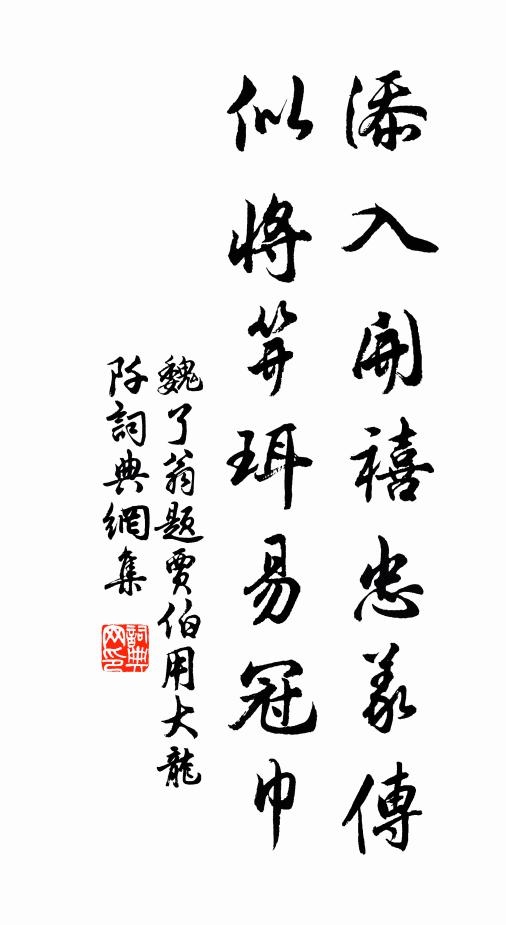 添入開禧忠義傳
似將笄珥易冠巾
魏了翁題賈伯用大龍
阡詞典網集
詞典
網印